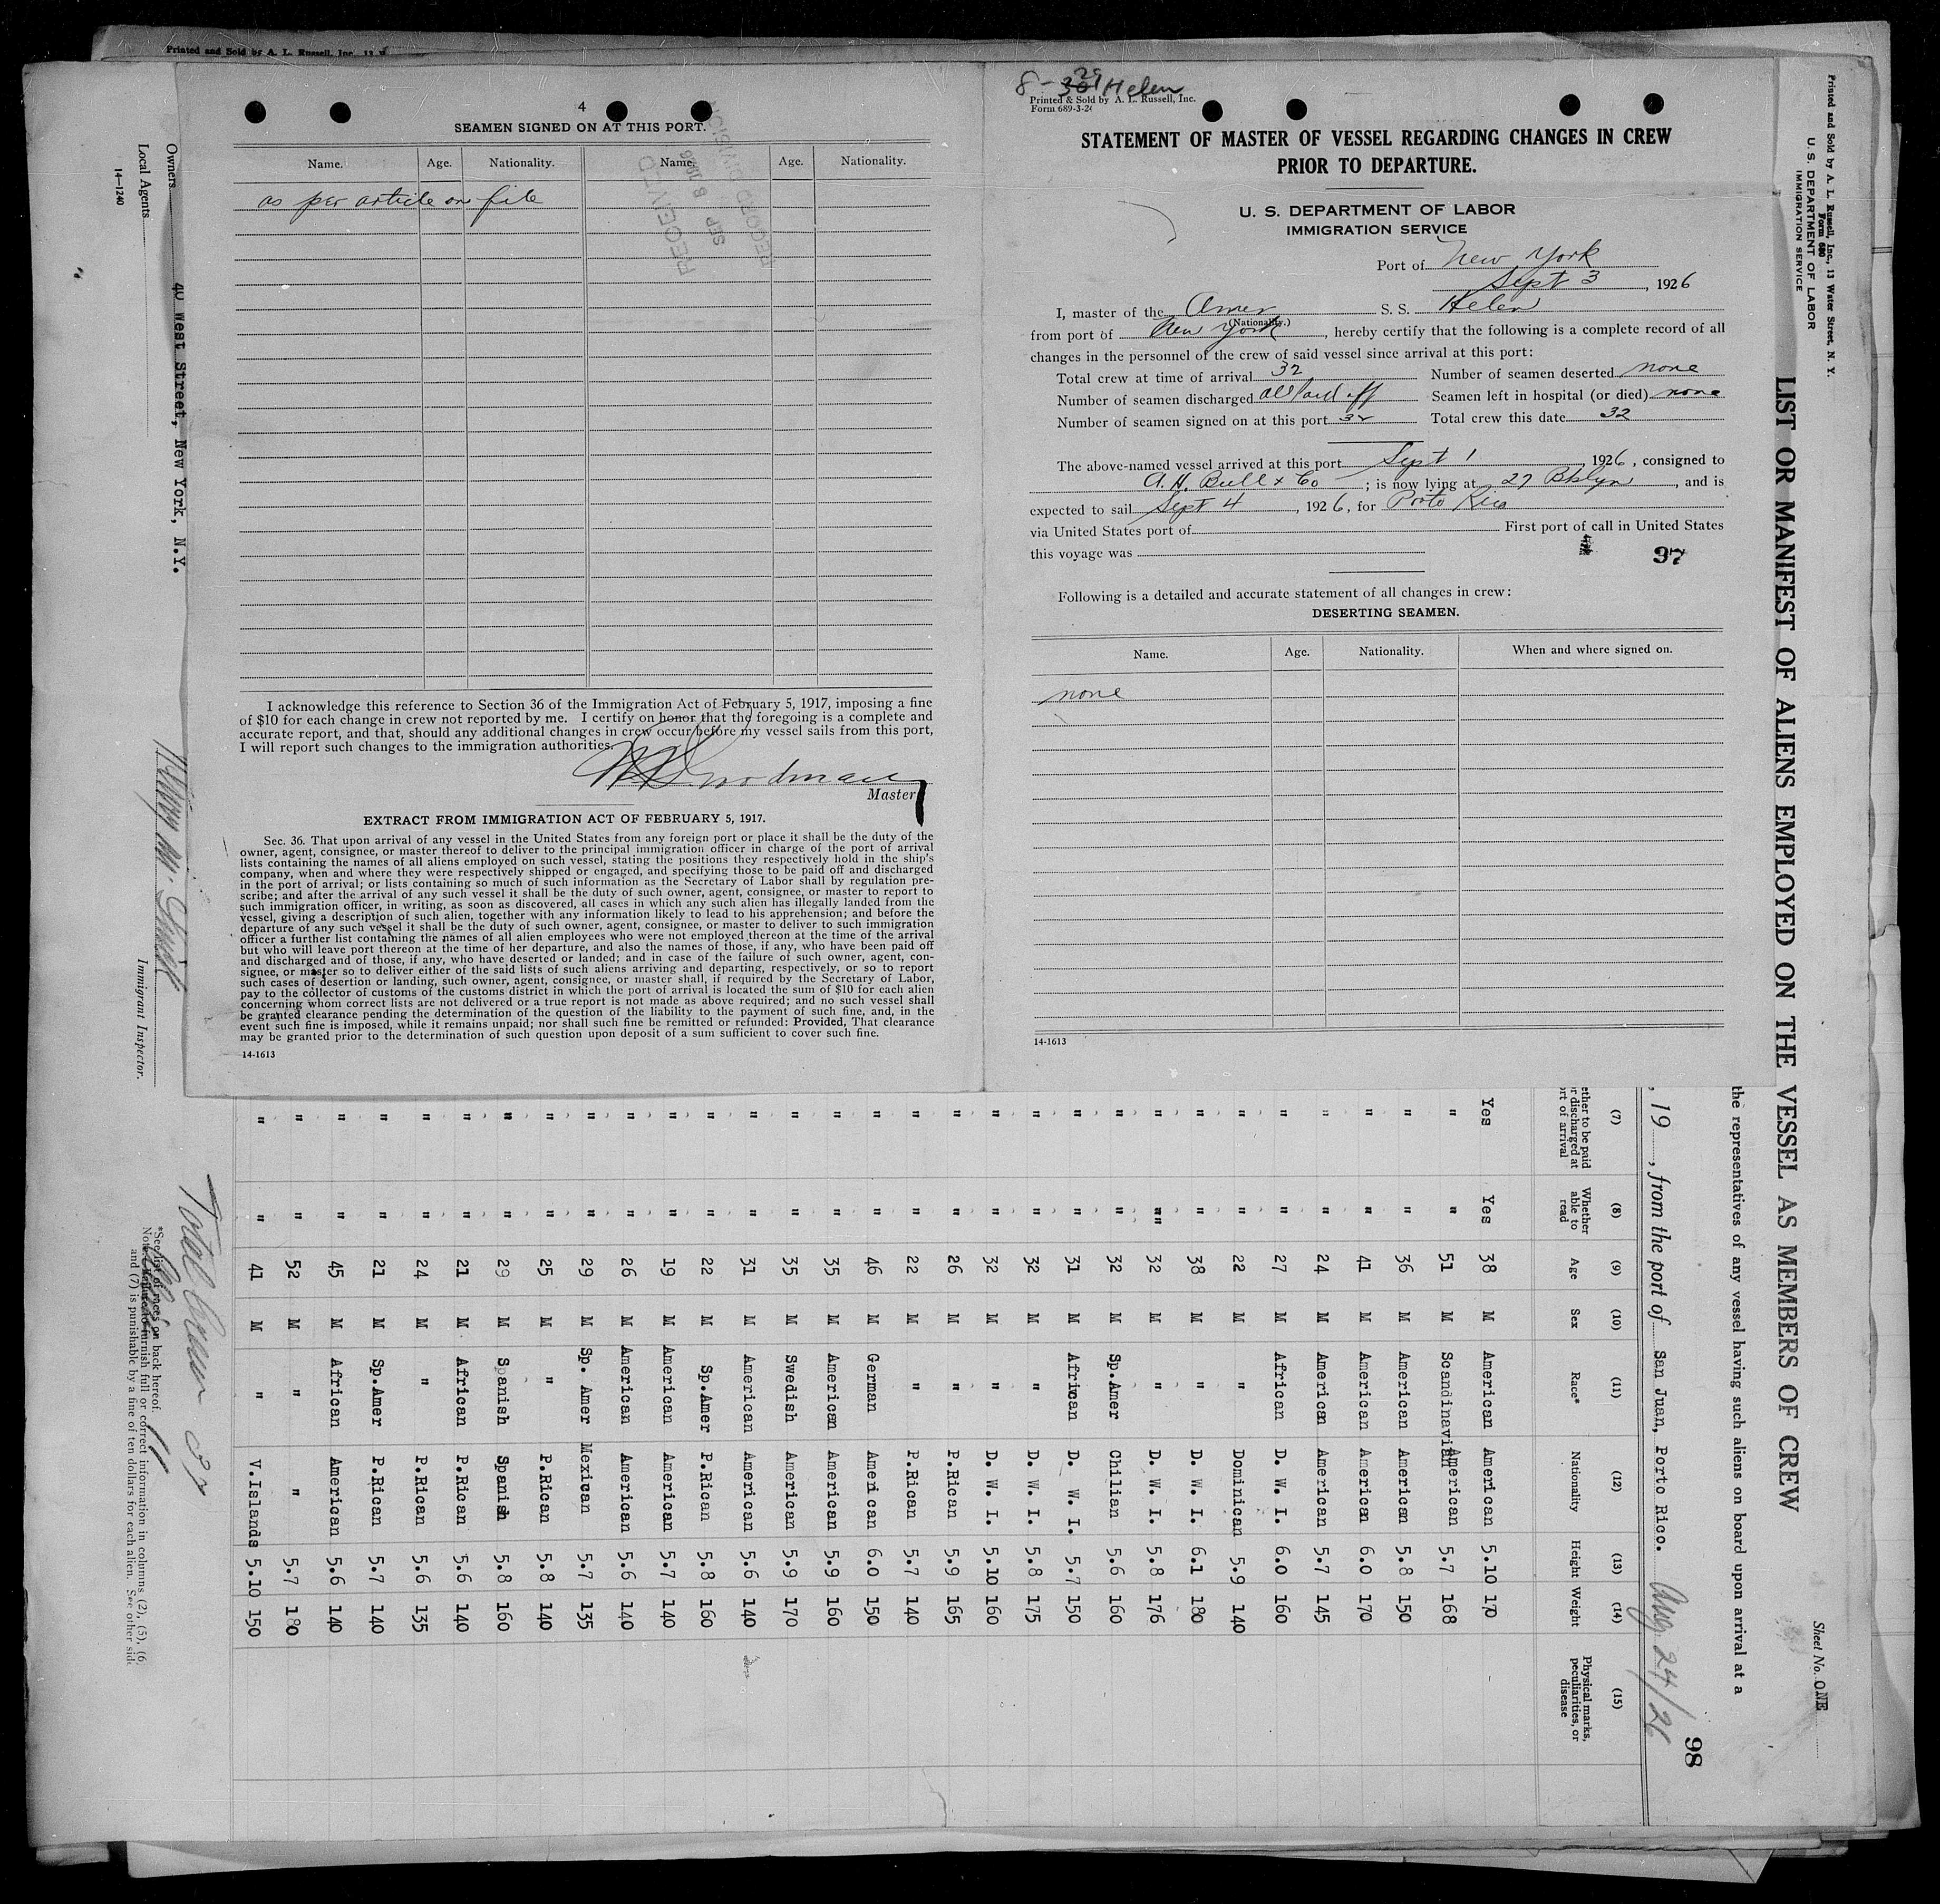 Printed and Sold by A. L. Russell, Inc., 13 W
4
SEAMEN SIGNED ON AT THIS PORT.
Name. Age. Nationality. Name. Age. Nationality.
as per article on file
RECEIVED
SEP 8 1926
RECORD DIVISION
I acknowledge this reference to Section 36 of the Immigration Act of February 5, 1917, imposing a fine
of $10 for each change in crew not reported by me. I certify on honor that the foregoing is a complete and
accurate report, and that, should any additional changes in crew occur before my vessel sails from this port,
I will report such changes to the immigration authorities.
Master
EXTRACT FROM IMMIGRATION ACT OF FEBRUARY 5, 1917.
Sec. 36. That upon arrival of any vessel in the United States from any foreign port or place it shall be the duty of the
owner, agent, consignee, or master thereof to deliver to the principal immigration officer in charge of the port of arrival
lists containing the names of all aliens employed on such vessel, stating the positions they respectively hold in the ship's
company, when and where they were respectively shipped or engaged, and specifying those to be paid off and discharged
in the port of arrival; or lists containing so much of such information as the Secretary of Labor shall by regulation pre-
scribe; and after the arrival of any such vessel it shall be the duty of such owner, agent, consignee, or master to report to
such immigration officer, in writing, as soon as discovered, all cases in which any such alien has illegally landed from the
vessel, giving a description of such alien, together with any information likely to lead to his apprehension; and before the
departure of any such vessel it shall be the duty of such owner, agent, consignee, or master to deliver to such immigration
officer a further list containing the names of all alien employees who were not employed thereon at the time of the arrival
but who will leave port thereon at the time of her departure, and also the names of those, if any, who have been paid off
and discharged and of those, if any, who have deserted or landed; and in case of the failure of such owner, agent, con-
signee, or master so to deliver either of the said lists of such aliens arriving and departing, respectively, or so to report
such cases of desertion or landing, such owner, agent, consignee, or master shall, if required by the Secretary of Labor,
pay to the collector of customs of the customs district in which the port of arrival is located the sum of $10 for each alien
concerning whom correct lists are not delivered or a true report is not made as above required; and no such vessel shall
be granted clearance pending the determination of the question of the liability to the payment of such fine, and, in the
event such fine is imposed, while it remains unpaid; nor shall such fine be remitted or refunded: Provided, That clearance
may be granted prior to the determination of such question upon deposit of a sum sufficient to cover such fine.
14-1613
8-30 29 Helen
Printed & Sold by A. L. Russell, Inc.
Form 689-3-26
STATEMENT OF MASTER OF VESSEL REGARDING CHANGES IN CREW
PRIOR TO DEPARTURE.
U. S. DEPARTMENT OF LABOR
IMMIGRATION SERVICE
Port of New York
Sept 3, 1926
I, master of the Amer S. S. Helen
(Nationality.)
from port of New York, hereby certify that the following is a complete record of all
changes in the personnel of the crew of said vessel since arrival at this port:
Total crew at time of arrival 32 Number of seamen deserted none
Number of seamen discharged all paid off Seamen left in hospital (or died) none
Number of seamen signed on at this port 32 Total crew this date 32
The above-named vessel arrived at this port Sept 1, 1926, consigned to
A. H. Bull & Co; is now lying at 27 Bklyn, and is
expected to sail Sept 4, 1926, for Porto Rico
via United States port of First port of call in United States
this voyage was
97
Following is a detailed and accurate statement of all changes in crew:
DESERTING SEAMEN.
Name. Age. Nationality. When and where signed on.
none
14-1613
Printed and Sold by A. L. Russell, Inc., 13 Water Street, N. Y.
Form 680
U. S. DEPARTMENT OF LABOR
IMMIGRATION SERVICE
Sheet No. ONE
LIST OR MANIFEST OF ALIENS EMPLOYED ON THE VESSEL AS MEMBERS OF CREW
the representatives of any vessel having such aliens on board upon arrival at a
98
, 19 , from the port of San Juan, Porto Rico. Aug. 24/26
(7) (8) (9) (10) (11) (12) (13) (14) (15)
ether to be paid r discharged at rt of arrival Whether able to read Age Sex Race* Nationality Height Weight Physical marks, peculiarities, or disease
Yes Yes 38 M American American 5.10 170
" " 51 M Scandinavian American 5.7 168
" " 36 M American American 5.8 150
" " 41 M American American 6.0 170
" " 24 M American American 5.7 145
" " 27 M African D. W. I. 6.0 160
" " 22 M " Dominican 5.9 140
" " 38 M " D. W. I. 6.1 180
" "" 32 M " D. W. I. 5.8 176
" " 32 M Sp.Amer Chilian 5.6 160
" " 31 M African D. W. I. 5.7 150
" " 32 M " D. W. I. 5.8 175
" " 32 M " D. W. I. 5.10 160
" " 26 M " P.Rican 5.9 165
" " 22 M " P.Rican 5.7 140
" " 46 M German American 6.0 150
" " 35 M American American 5.9 160
" " 35 M Swedish American 5.9 170
" " 31 M American American 5.6 140
" " 22 M Sp.Amer P.Rican 5.8 160
" " 19 M American American 5.7 140
" " 26 M American American 5.6 140
" " 29 M Sp. Amer Mexican 5.7 135
" " 25 M " P.Rican 5.8 140
" " 29 M Spanish Spanish 5.8 160
" " 21 M African P.Rican 5.6 140
" " 24 M " P.Rican 5.6 135
" " 21 M Sp.Amer P.Rican 5.7 140
" " 45 M African American 5.6 140
" " 52 M " " 5.7 180
" " 41 M " V.Islands 5.10 150
Total Crew 32
Owners 40 West Street, New York, N.Y.
Local Agents
14-1240
Immigrant Inspector.
*See list of races on back hereof.
furnish full or correct information in columns (2), (5), (6
and (7) is punishable by a fine of ten dollars for each alien. See other side